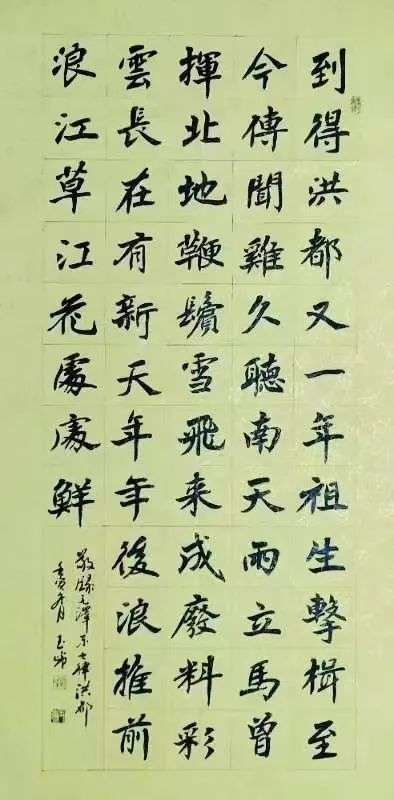 到得洪都又一年祖生擊楫至
今傳聞雞久聽南天雨立馬曾
揮北地鞭鬢雪飛来成廢料彩
雲長在有新天年年後浪推前
浪江草江花處處鮮
敬録毛澤东七律洪都
壬寅月玉